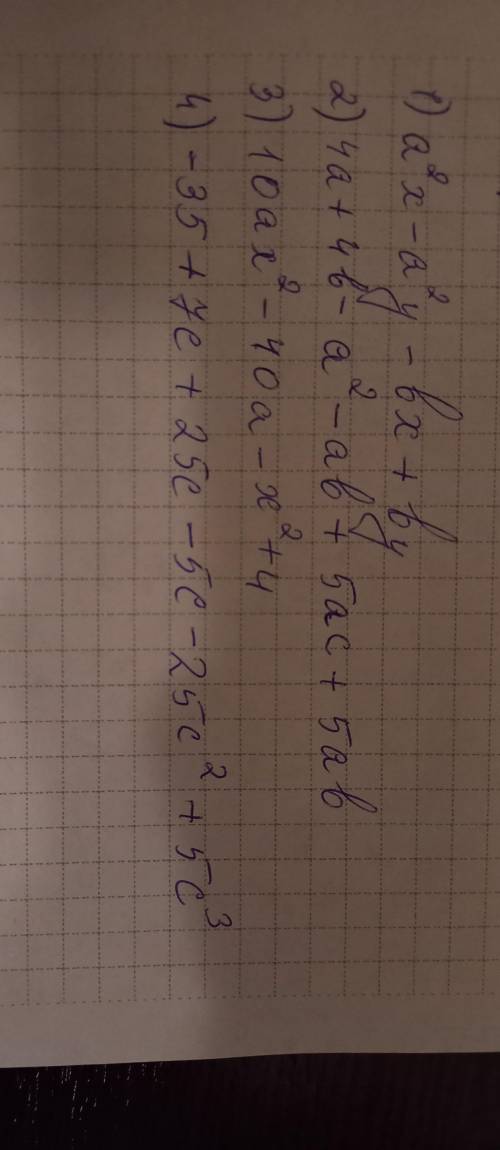 1) a²x - a²y - bx + by
2) 4a + 4b - a² - ab + 5ac + 5ab
3) 10ax² - 40a - x² + 4
4) -35 + 7c + 25c - 5c - 25c² + 5c³